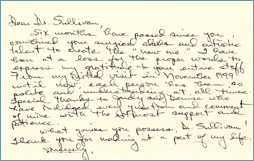 Dear Dr. Sullivan,
Six months have passed since you
combined your surgical skills and artistic
talent to create the "new me". I have
been at a loss for the proper words to
express my gratitude to your entire staff.
From my initial visit in November 1999
until now, each person has been so
polite and understanding at all times.
Special thanks to and Denise who
have every question and comment
of mine with the utmost support and
patience.
What gives you possess, Dr. Sullivan!
Thank you for making a part of my life.
Sincerely